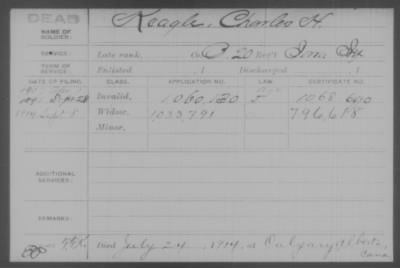 DEAD
NAME OF SOLDIER: Keagle, Charles H.
SERVICE: Late rank, Co. B. 20 Reg't Iowa Inf
TERM OF SERVICE: Enlisted , 1 Discharged , 1
DATE OF FILING. CLASS. APPLICATION NO. LAW. CERTIFICATE NO.
1891 Sept 28 Invalid, 1060,130 1068,
1914 Sept 8 Widow, 1033,791 796,618
Minor,
ADDITIONAL SERVICES:
REMARKS:
Died July 24, 1914, at Calgary, Alberta,
Cana